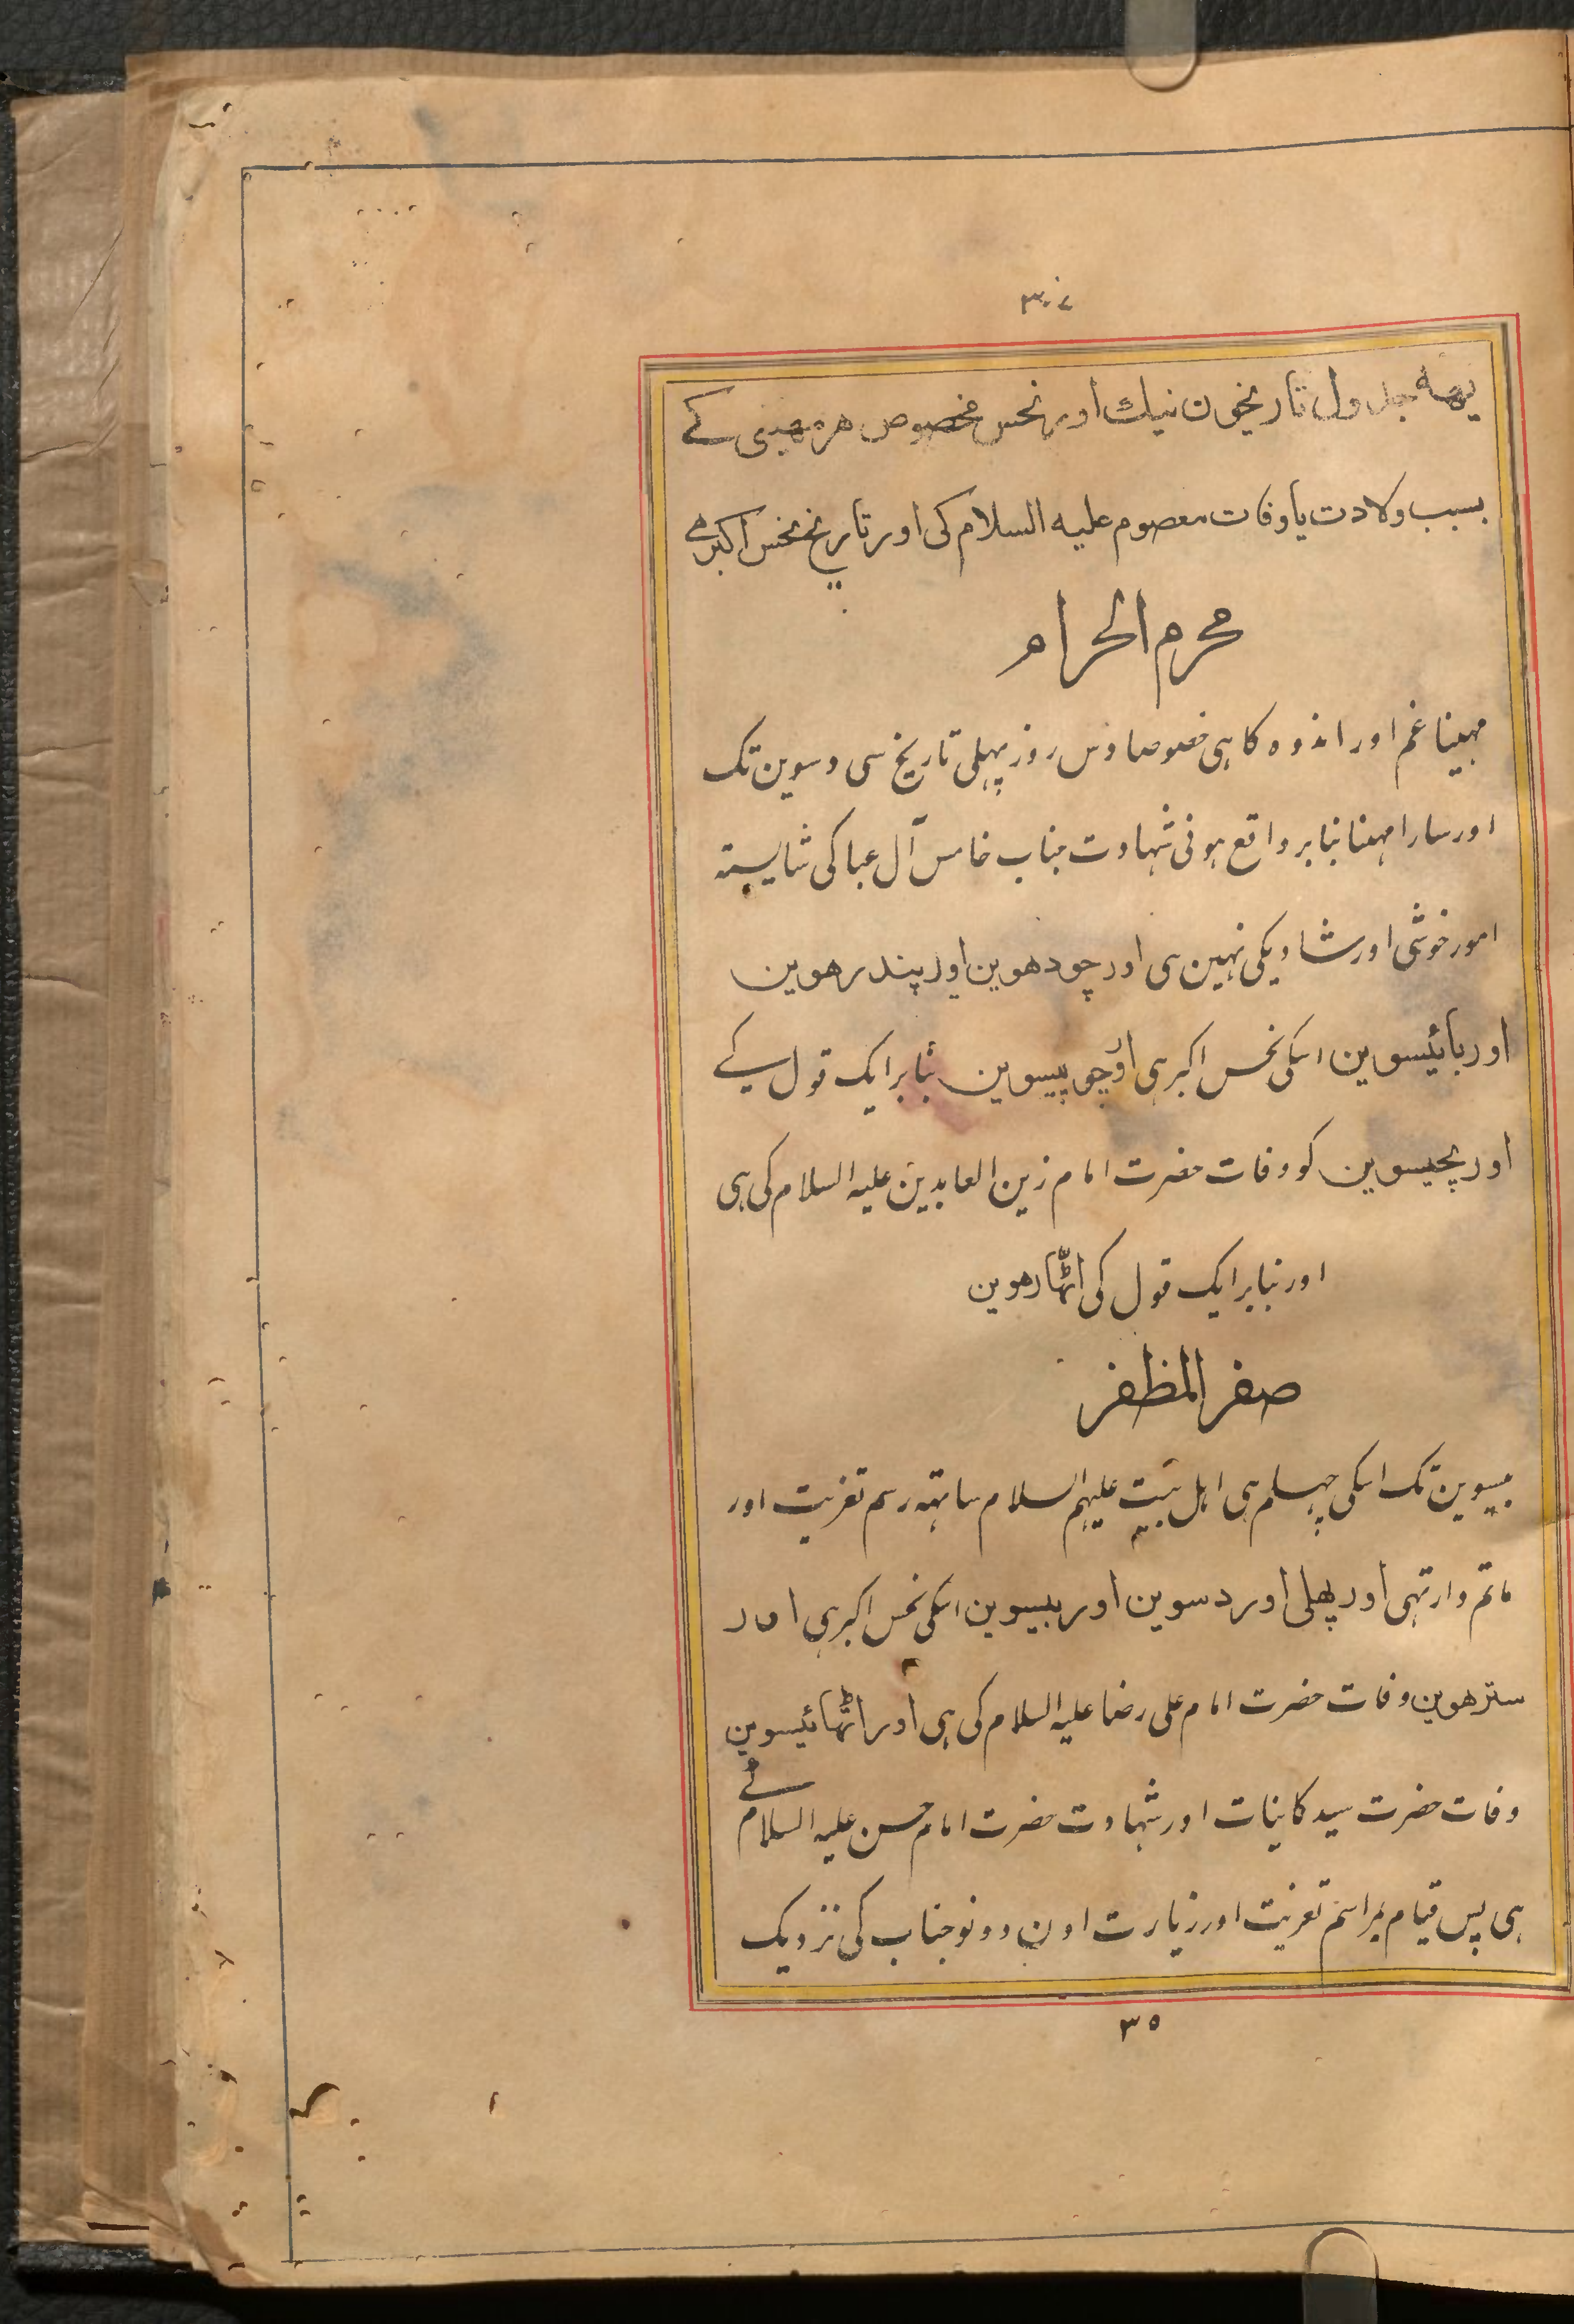 ۳۰۷
یهه جدول تاریخون نیك اور نحس مخصوص هر مهینی کے
بسبب ولادت یا وفات معصوم علیه السلام کی اور تاریخ نحس اکبر سے
محرم الحرام
مہینا غم اور اندوه کا ہی خصوصا دس روز پہلی تاریخ سی دسوین تک
اور سارا مہنا بنابر واقع ہونی شہادت جناب خامس آل عبا کی شایسته
امور خوشی اور شادیکی نہین ہی اور چودهوین اور پندرهوین
اور بائیسوین اسکی نحس اکبر ہی اور چوبیسوین بنابر ایک قول کے
اور پچیسوین کو وفات حضرت امام زین العابدین علیه السلام کی ہی
اور بنابر ایک قول کی اٹھارهوین
صفر المظفر
بیسوین تک اسکی چہلم ہی اہل بیت علیهم السلام ساتهه رسم تعزیت اور
ماتم دار تہی اور پهلی اور دسوین اور بیسوین اسکی نحس اکبر ہی اور
سترهوین وفات حضرت امام علی رضا علیه السلام کی ہی اور اٹھائیسوین
وفات حضرت سید کاینات اور شہادت حضرت امام حسن علیه السلام کے
ہی پس قیام بمراسم تعزیت اور زیارت اون دونو جناب کی نزدیک
۳۵